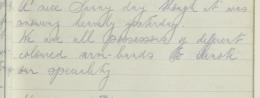 A nice sunny day though it was
snowing heavily yesterday.
We are all possessors of different
colored arm-bands to denote
our speciality